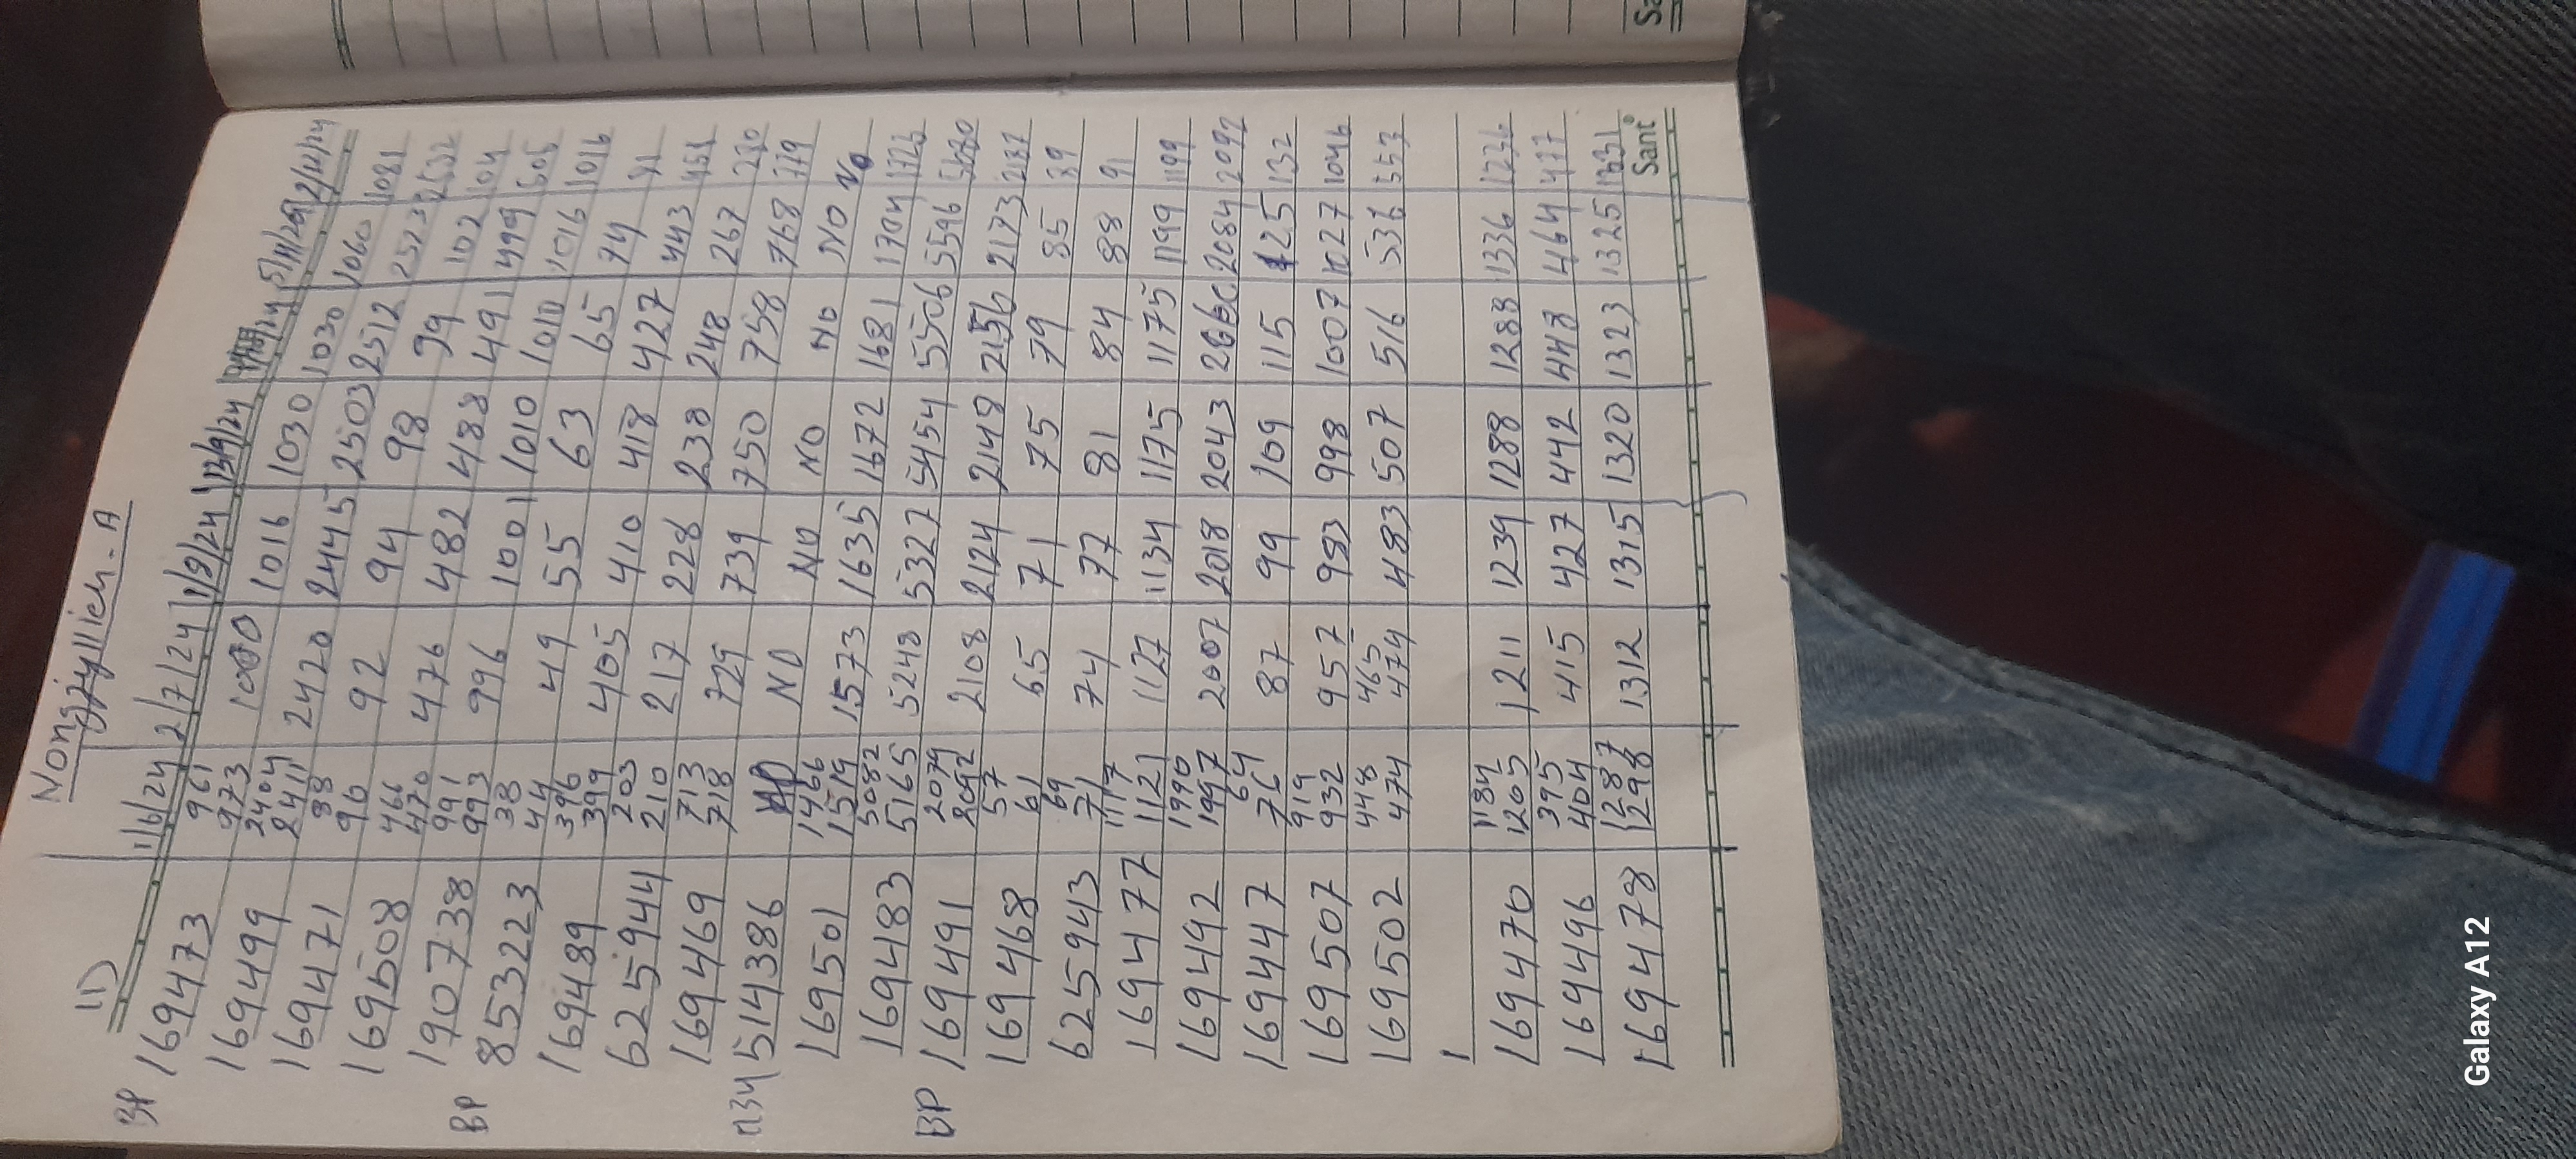 11)
Nongjyllieh - A
1/6/24 2/7/24 1/8/24 13/9/24 5/11/24 2/12/24
BP 169473 961 973 1000 1016 1030 1030 1060 1081
169499 2404 2411 2420 2445 2503 2512 2523 2532
169471 88 90 92 94 98 99 102 104
169508 466 470 476 482 488 491 499 505
190738 991 993 996 1001 1010 1010 1016 1016
BP 853223 38 44 49 55 63 65 74
169489 396 399 405 410 418 427 443
6255944 203 210 217 228 238 248 267
169469 713 718 729 739 750 758 768 779
M34 514386 NO NO NO NO NO No
169501 1466 1519 1573 1635 1672 1681 1704
169483 5082 5165 5248 5327 5454 5506 5596
BP 169491 2079 2092 2108 2124 2148 2156 2173 2187
169468 57 61 65 71 75 79 85 89
6255943 69 71 74 77 81 84 88 91
169477 1117 1121 1127 1134 1175 1175 1199 1199
169492 1990 1997 2007 2018 2043 2084 2092
169447 64 76 87 99 109 115 125 132
169507 919 932 957 983 998 1007 1027 1046
169502 448 474 465 474 483 507 516 536 553
1
169470 1184 1205 1211 1239 1288 1288 1336
169496 395 404 415 427 442 448 464 477
169478 1287 1298 1312 1315 1320 1323 1325 1331
Sant
Galaxy A12